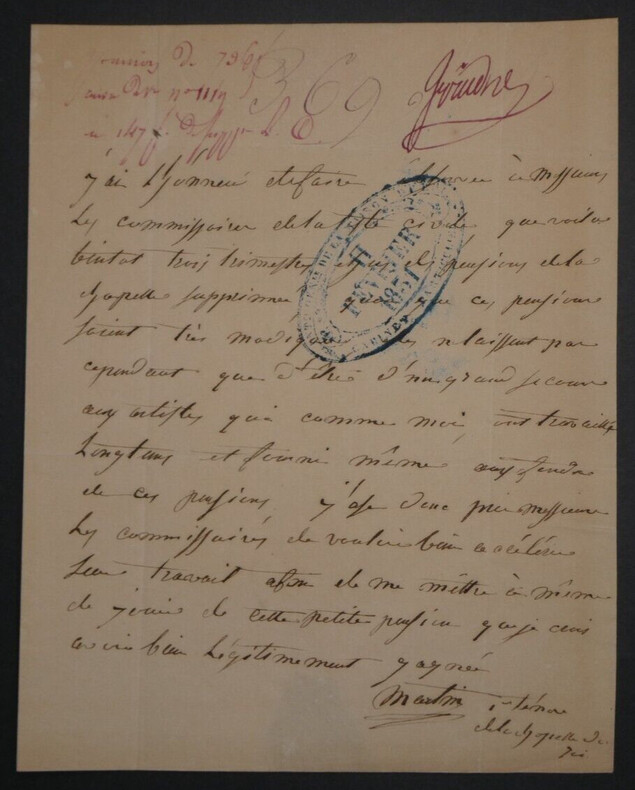 369
j'ai l'honneur de faire observer à messieurs
les commissaires de la liste civile que voila
bientot trois trimestres des pensions de la
chapelle supprimés quoique ces pensions
soient très modiques elles ne laissent pas
cependant que d'être d'un grand secours
aux artistes qui comme moi, ont travaillé
longtems et fourni même aux fonds
de ces pensions j'ose donc prier messieurs
les commissaires de vouloir bien accélérer
leur travail afin de me mettre à même
de jouir de cette petite pension que je crois
avoir bien légitimement gagnée
Martin 1er ténor
de la chapelle du
roi
11
FÉVRIER
1831
CABINET